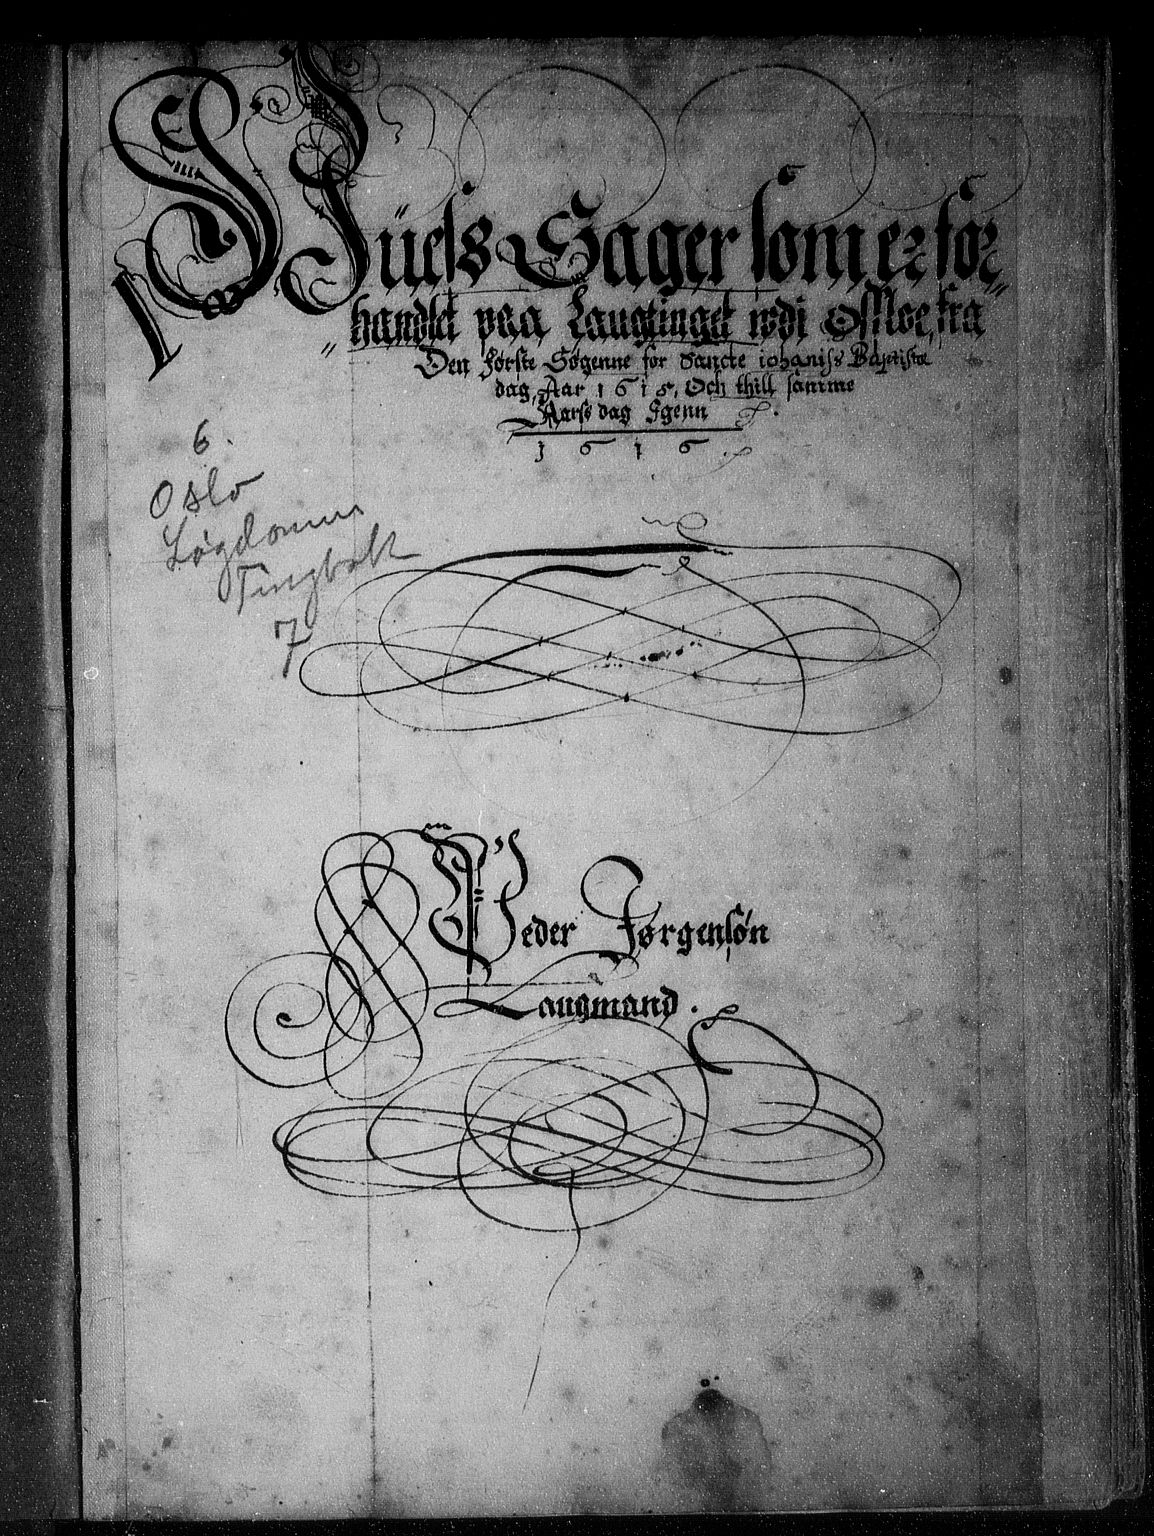 Süels Sager som er for
handlet paa Laugtinget wdi Osloe, fra
Den Første Søgenne for Sancte iohaniss Baptistæ
dag, Aar 1615, Och thill samme
Aarss dag Igenn
1616
6.
Oslo
Løgdømme
Tingbok
7
Peder Jørgensøn
Laugmand.